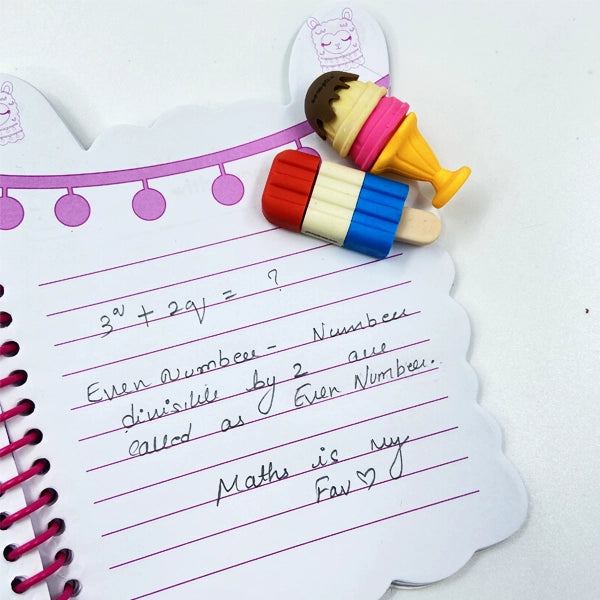 3^a + 2q = ?
Even Number - Number
divisible by 2 are
called as Even Number.
Maths is my
Fav ♡